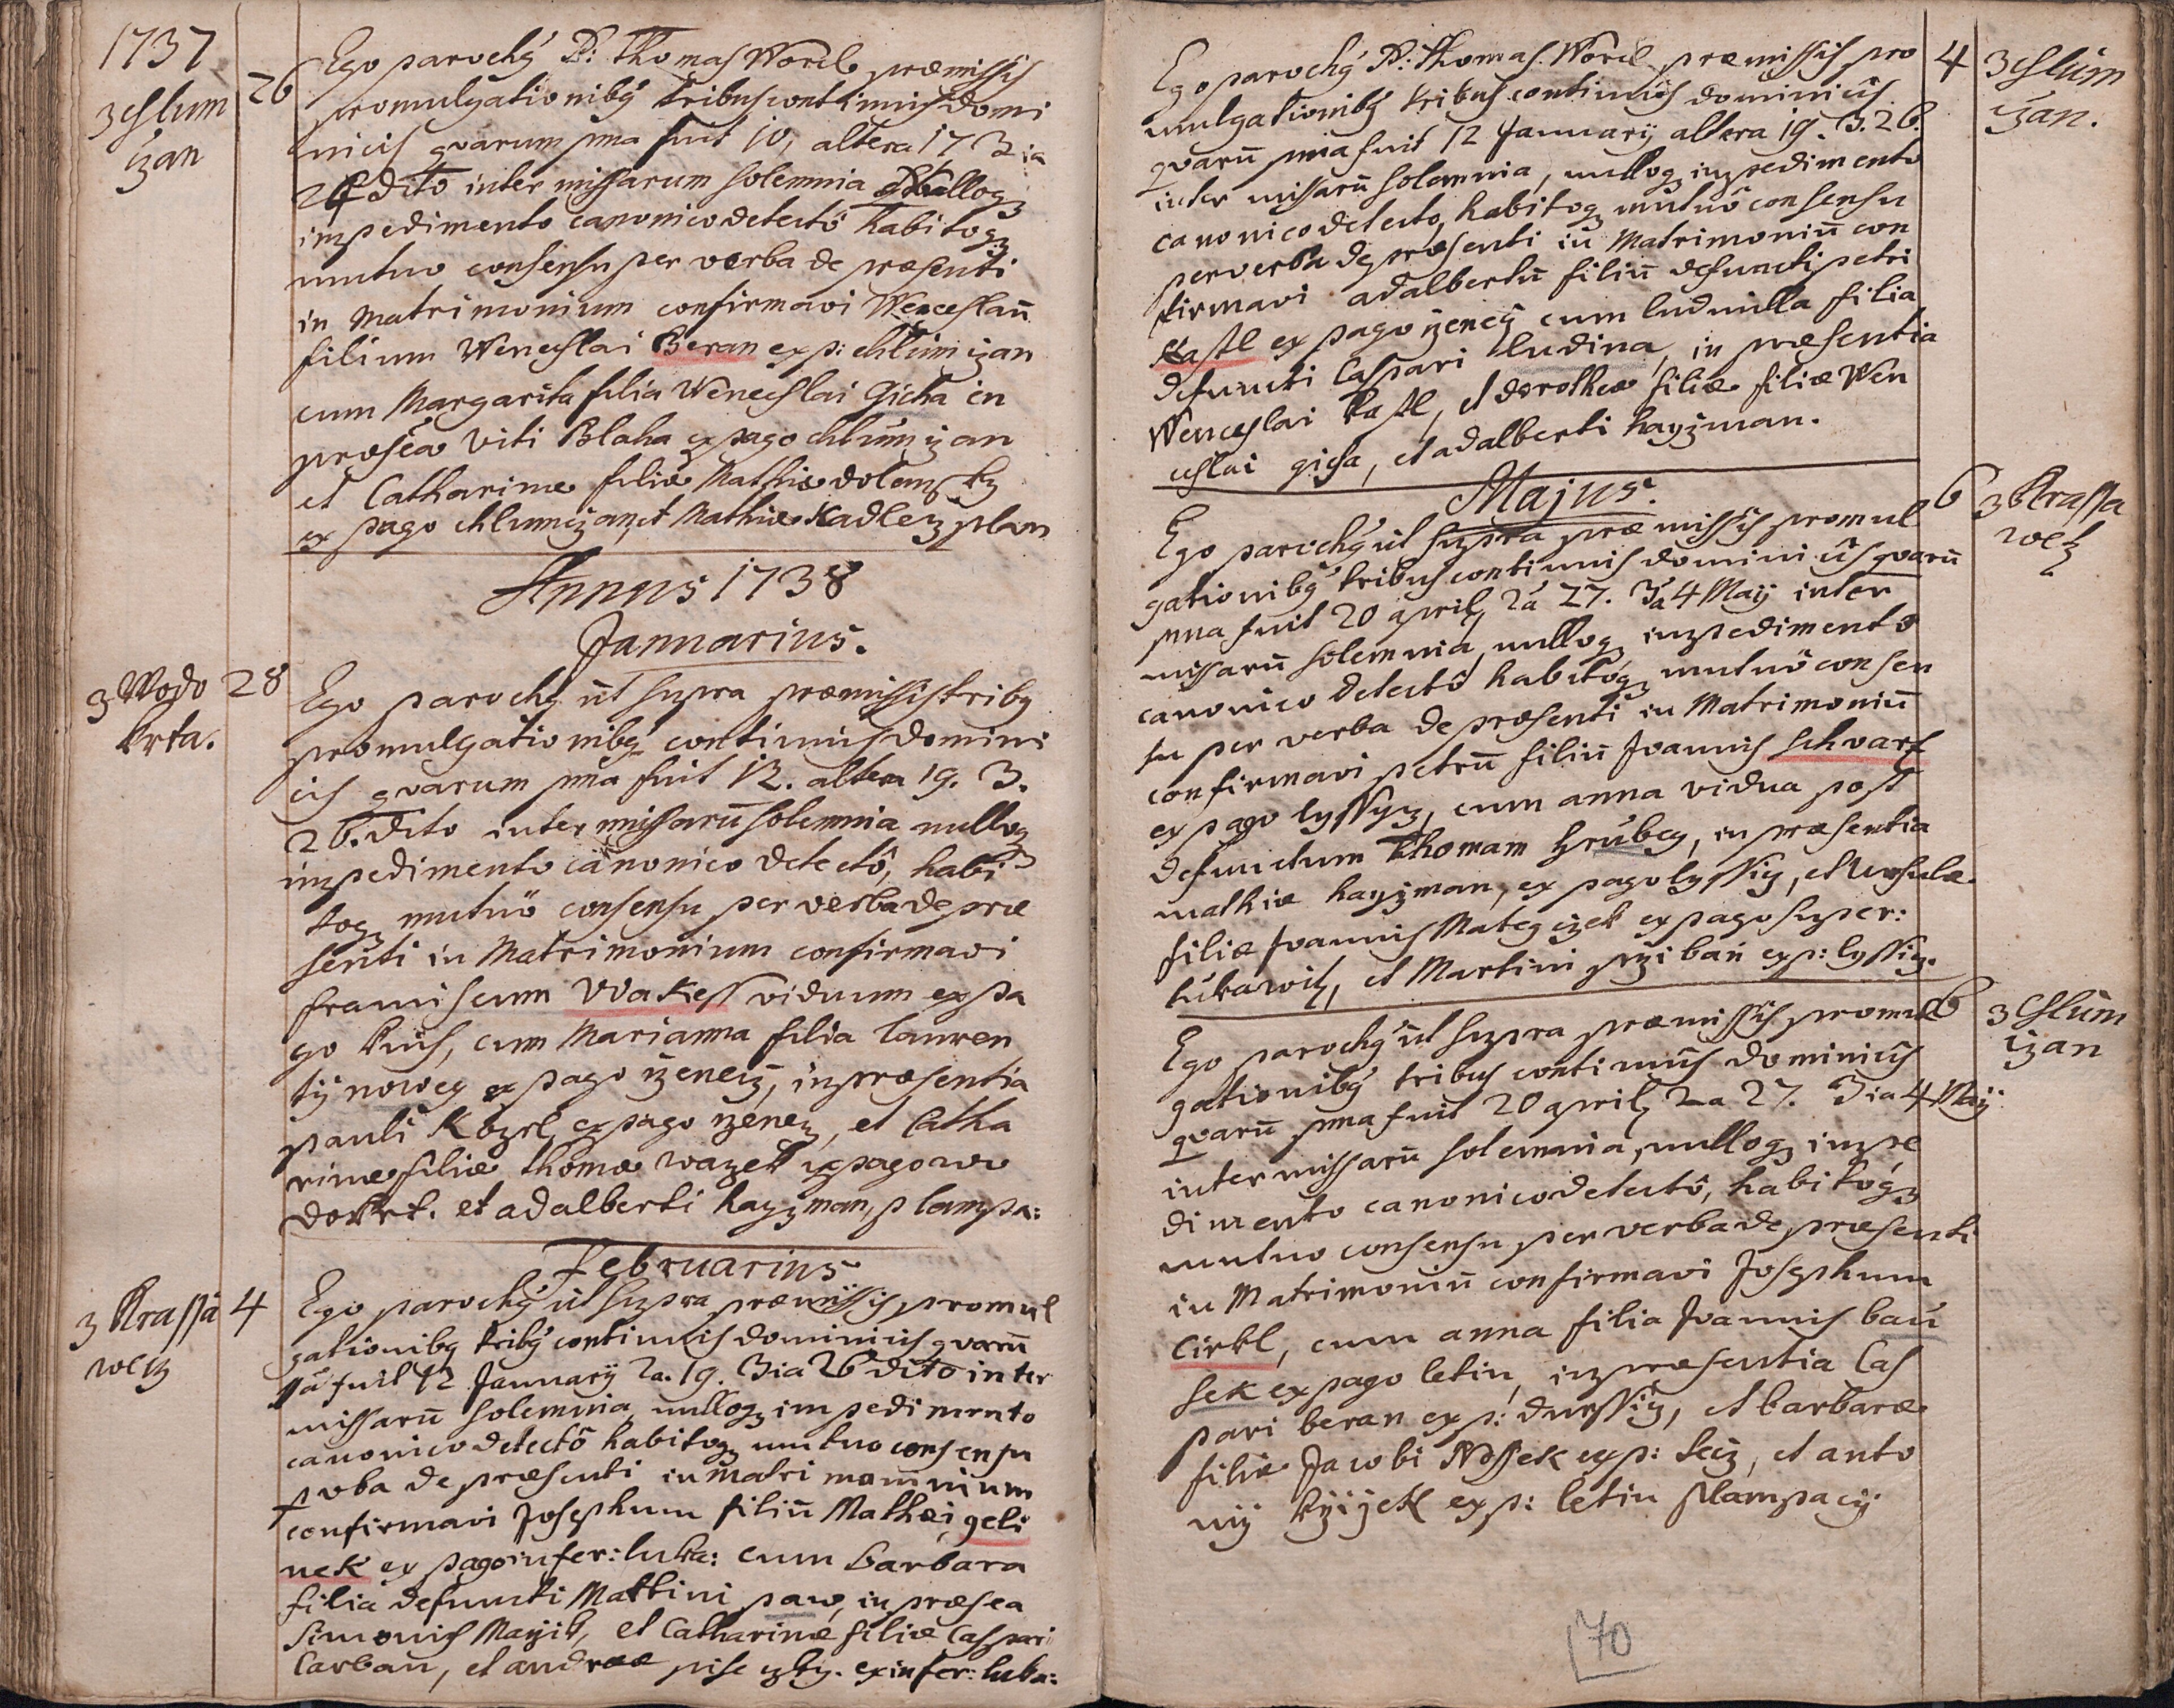 1737
z Chlum
czan
26
Ego parochg P: Thomas Worel præmissis
promulgationibg tribus continuis domi
nicis qvarum pma fuit 10, altera 17 3ia
24 dito inter missarum solemnia nulloq
impedimento canonico detectô habitoq
mutuo consensu per verba de præsenti
in Matrimonium confirmavi Wenceslaū
filium Wenceslai Beran ex p: chlumczan
cum Margarita filia Wenceslai Gicha in
præsēa Viti Blaha ex pago chlumczan
et Catharinæ filiæ Mathiæ dolensky
ex pago chlumczan, et Mathiæ Kadlecz
Annus 1738
Januarius.
z Wodo
krta.
28
Ego parochg ut supra præmissis tribg
promulgationibg continuis domini
cis qvarum pma fuit 12. altera 19. 3.
26. dito inter missarū solemnia nulloq
impedimento canonico detectô, habi
toq mutuô consensu per verba de præ
senti in Matrimonium confirmavi
franciscum Wakess viduum ex pa
go kuch, cum Marianna filia lauren
tij nowey ex pago czenecz, in præsentia
pauli Kozel ex pago czenecz, et Catha
rinæ filiæ thomæ wazek ex pago wo
dokrt. et adalberti hayzman, p lampa:
Februarius
z Krassa
wecz
4
Ego parochg ut supra præmissis promul
gationibg tribg continuis dominicis qvarū
1a fuit 12 January 2a. 19. 3ia 26 dito inter
missarū solemnia, nulloq impedimento
canonico detectô habitoq mutuo consensu
p vba de præsenti in matrimonium
confirmavi Josephum filiū Mathæi geli
nek ex pago infer: luka: cum barbara
filia defuncti Martini paw, in præsēa
Simonis Mazik, et Catharinæ filiæ Caspari
Carban, et andreæ ex infer: luka:
Ego parochg P: Thomas. Worel præmissis pro
mulgationibg tribus continuis dominicis
qvarū pma fuit 12 Januarij altera 19. 3. 26.
inter missarū solemnia, nulloq impedimento
canonico detecto, habitoq mutuô consensu
per verba de præsenti in Matrimoniū con
firmavi adalbertū filiū defuncti petri
Kastl ex pago czenecz cum ludmilla filia
defuncti Caspari ludina, in præsentia
Wenceslai kastl, et dorotheæ filiæ filiæ Wen
ceslai gicha, et adalberti hayzman.
4
z Chlum
czan.
Majus.
Ego parochg ut supra præmissis promul
gationibg tribus continuis dominicis qvarū
pma fuit 20 april, 2a 27. 3a 4 Maij inter
missarū solemnia, nulloq impedimentô
canonico detectô habitoq mutuô consen
su per verba de præsenti in Matrimoniū
confirmavi petrū filiū Joannis schvartz
ex pago lyssycz, cum anna vidua post
defunctum Thomam hrubey, in præsentia
mathiæ hayzman, ex pago lyssicz, et Ursulæ
filiæ Joannis Mategczek ex pago super:
lukawitz, et Martini przibań ex p: lyssicz.
6
z Krassa
wetz
Ego parochg ut supra præmissis promul
gationibg tribus continuis dominicis
qvarū pma fuit 20 april, 2a 27. 3ia 4 Maij
inter missarū solemnia, nulloq impe
dimento canonico detectô, habitoq
mutuo consensu per verba de præsenti
in Matrimoniū confirmavi Josephum
Cirkl, cum anna filia Joannis bau
sek ex pago letin, in præsentia Cas
pari beran ex p: dnessicz, et barbaræ
filiæ Jacobi Nossek ex p: secz, et anto
nij ex p: letin plampacij.
6
z Chlum
czan
70